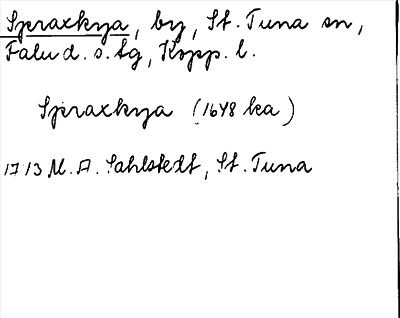 Spraxkya, by, St. Tuna sn,
Falu d. s. lg, Kopp. l.
Spraxkya (1648 ka)
1713 M. A. Sahlstedt, St. Tuna